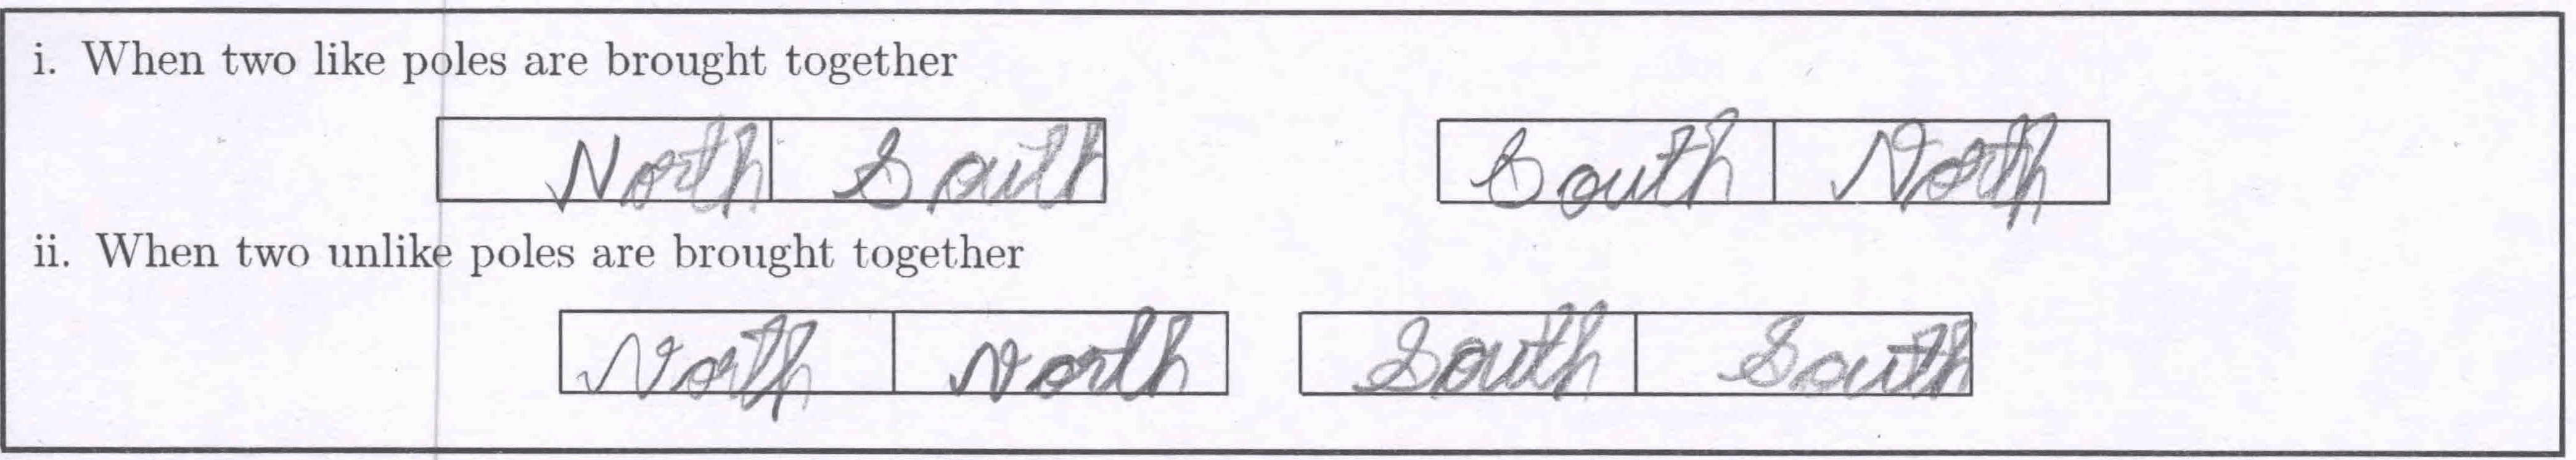 i. When two like poles are brought together
North South South North
ii. When two unlike poles are brought together
North North South South